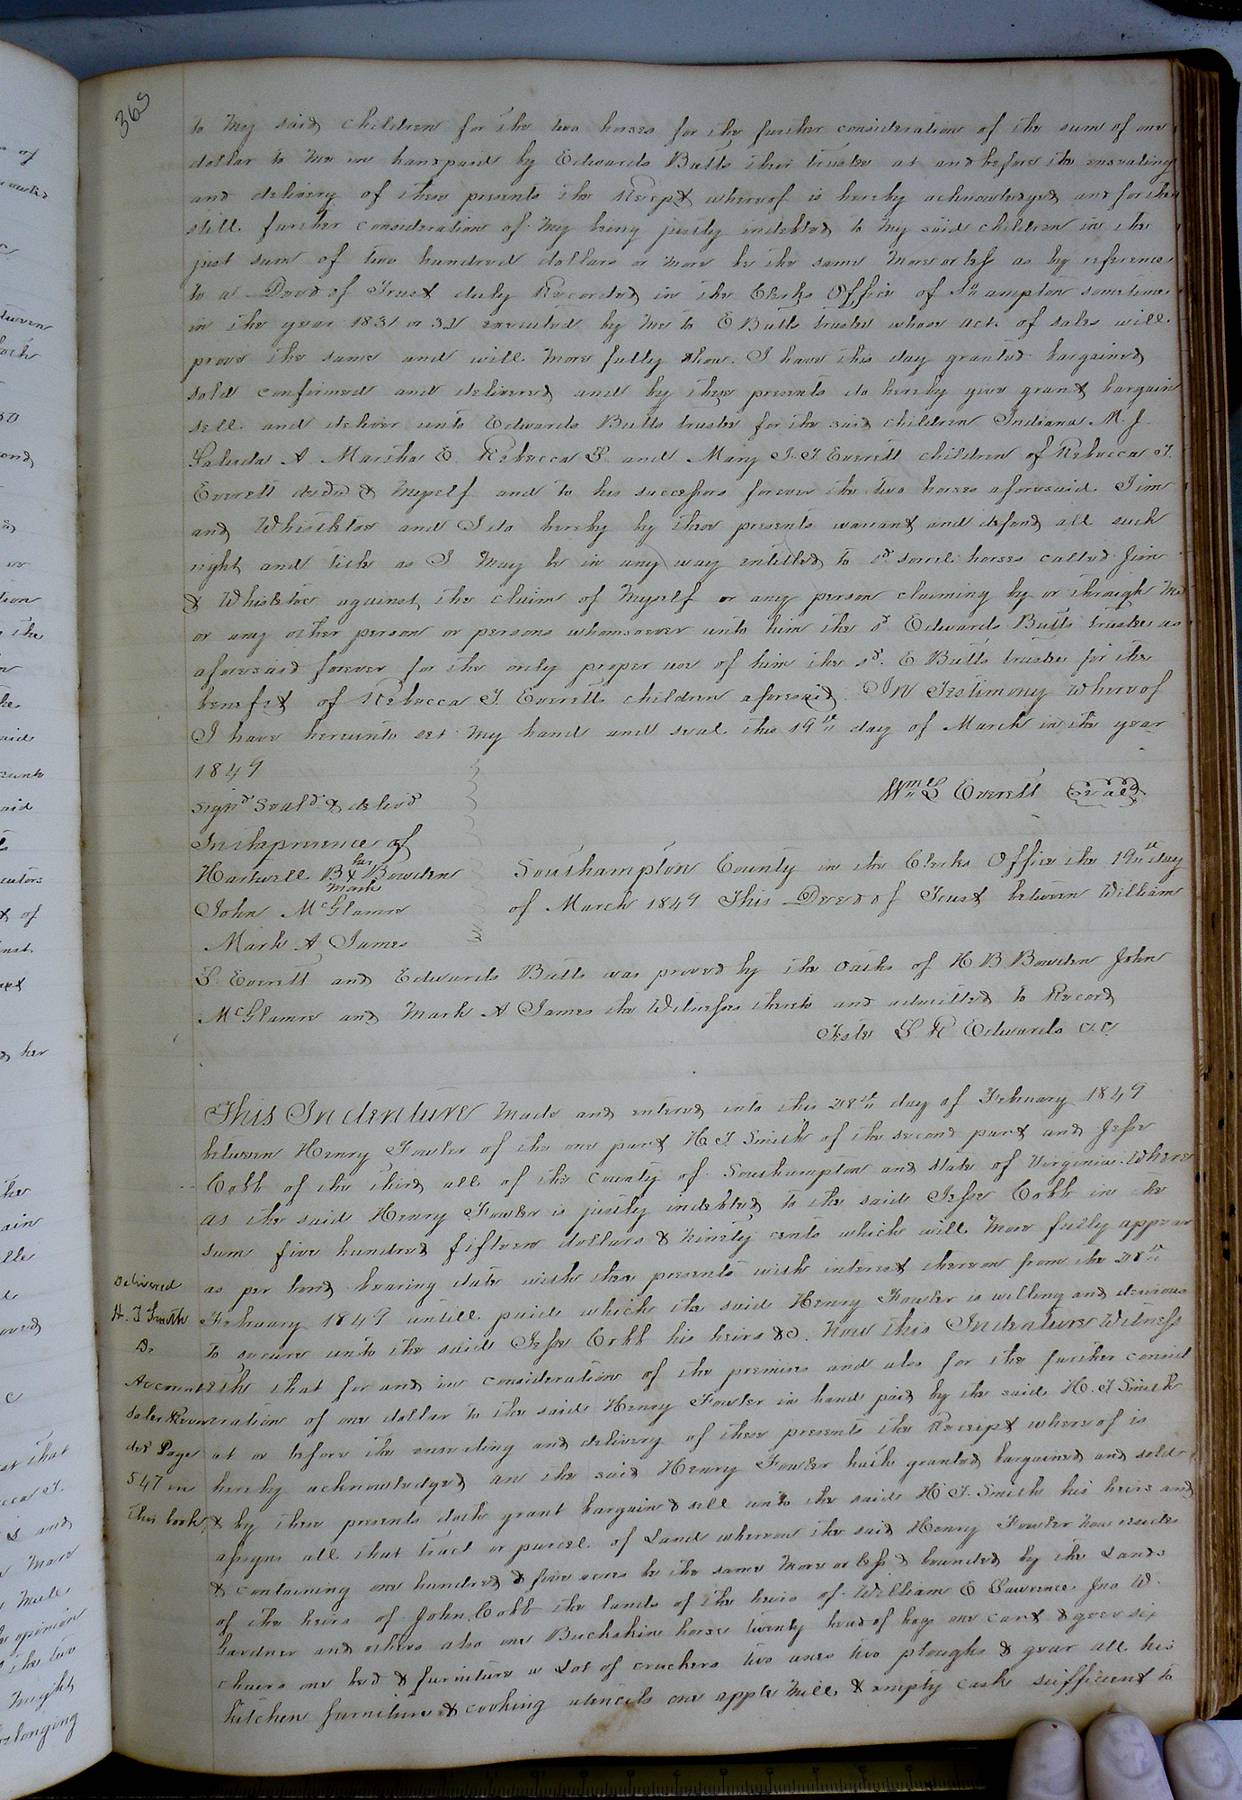 365
to my said children for the two horses for the further consideration of the sum of one
dollar to me in hand paid by Edwards Butts their trustee at and before the ensealing
and delivery of these presents the Receipt whereof is hereby acknowledged and further
still further consideration of my being justly indebted to my said children in the
just sum of two hundred dollars or more be the same more or less as by reference
to a Deed of Trust duly Recorded in the Clerks Office of Sohampton sometime
in the year 1831 or 32 executed by me to E Butts trustee whose act of sales will
prove the same and will more fully show. I have this day granted bargained
sold confirmed and delivered and by these presents do hereby give grant bargain
sell and deliver unto Edwards Butts trustee for the said children Indiana M. J.
Saluda A Marsha E. Rebecca S and Mary I. T Everett children of Rebecca T.
Everett decd & myself and to his successors forever the two horses aforesaid Jim
and Whistler and I do hereby by these presents warrant and defend all such
right and title as I may be in any way entitled to sd sorrel horses called Jim
& Whistler against the claim of myself or any person claiming by or through me
or any other person or persons whomsoever unto him the sd Edwards Butts trustee as
aforesaid forever for the only proper use of him the sd. E Butts trustee for the
benefit of Rebecca T. Everett children aforesaid. In Testimony whereof
I have hereunto set my hand and seal this 19th day of March in the year
1849
Wm S Everett Seal
Signd Seald & delivd
In the presence of
Hartwell B his X mark Bowden
John McGlamre
Mark A James
Southampton County in the Clerks Office the 19th day
of March 1849 This Deed of Trust between William
S. Everett and Edwards Butts was proved by the oaths of H B Bowden John
McGlamre and Mark A James the Witnesses thereto and admitted to Record
Teste L R Edwards c.c.
This Indenture made and entered into this 28th day of February 1849
between Henry Fowler of the one part H. T Smith of the second part and Jesse
Cobb of the third all of the county of Southampton and State of Virginia. Where
as the said Henry Fowler is justly indebted to the said Jesse Cobb in the
sum five hundred fifteen dollars & ninety cents which will more fully appear
as per bond bearing date with these presents with interest thereon from the 28th
February 1849 untill paid which the said Henry Fowler is willing and desirous
to secure unto the said Jesse Cobb his heirs &c. Now this Indenture Witness
eth that for and in consideration of the premises and also for the further consid
eration of one dollar to the said Henry Fowler in hand paid by the said H. T Smith
at or before the ensealing and delivery of these presents the Receipt whereof is
hereby acknowledged he the said Henry Fowler hath granted bargained and sold
& by these presents doth grant bargain & sell unto the said H T. Smith his heirs and
assigns all that tract or parcel of Land whereon the said Henry Fowler now reside
& containing one hundred & five acres be the same more or less & bounded by the Lands
of the heirs of John Cobb the lands of the heirs of William E Lawrence Jno W.
Gardner and others also one Buckskin horse twenty head of hogs one cart & gear six
chairs one bed & furniture a Lot of crockery two axes two ploughs & gear all his
kitchen furniture & cooking utencils one apple mill & empty cask sufficient to
Delivered
H. T Smith
Do
Account
Sales Recor
ded Page
547 in
this book